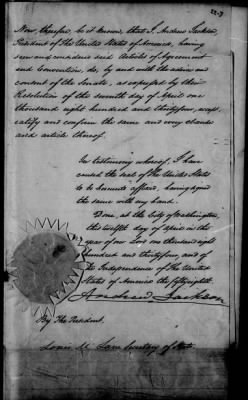 22-7
Now, therefore, be it known, that I, Andrew Jackson,
President of the United States of America, having
seen and considered said Articles of Agreement
and Convention, do, by and with the advice and
consent of the Senate, as expressed by their
Resolution of the seventh day of April one
thousand eight hundred and thirty four, accept,
ratify and confirm the same and every clause
and article thereof.
In testimony whereof, I have
caused the seal of the United States
to be hereunto affixed, having signed
the same with my hand.
Done at the City of Washington,
this twelfth day of April in the
year of our Lord one thousand eight
hundred and thirty four, and of
the Independence of the United
States of America the fifty eighth.
Andrew Jackson
By the President.
Louis M Lane Secretary of State